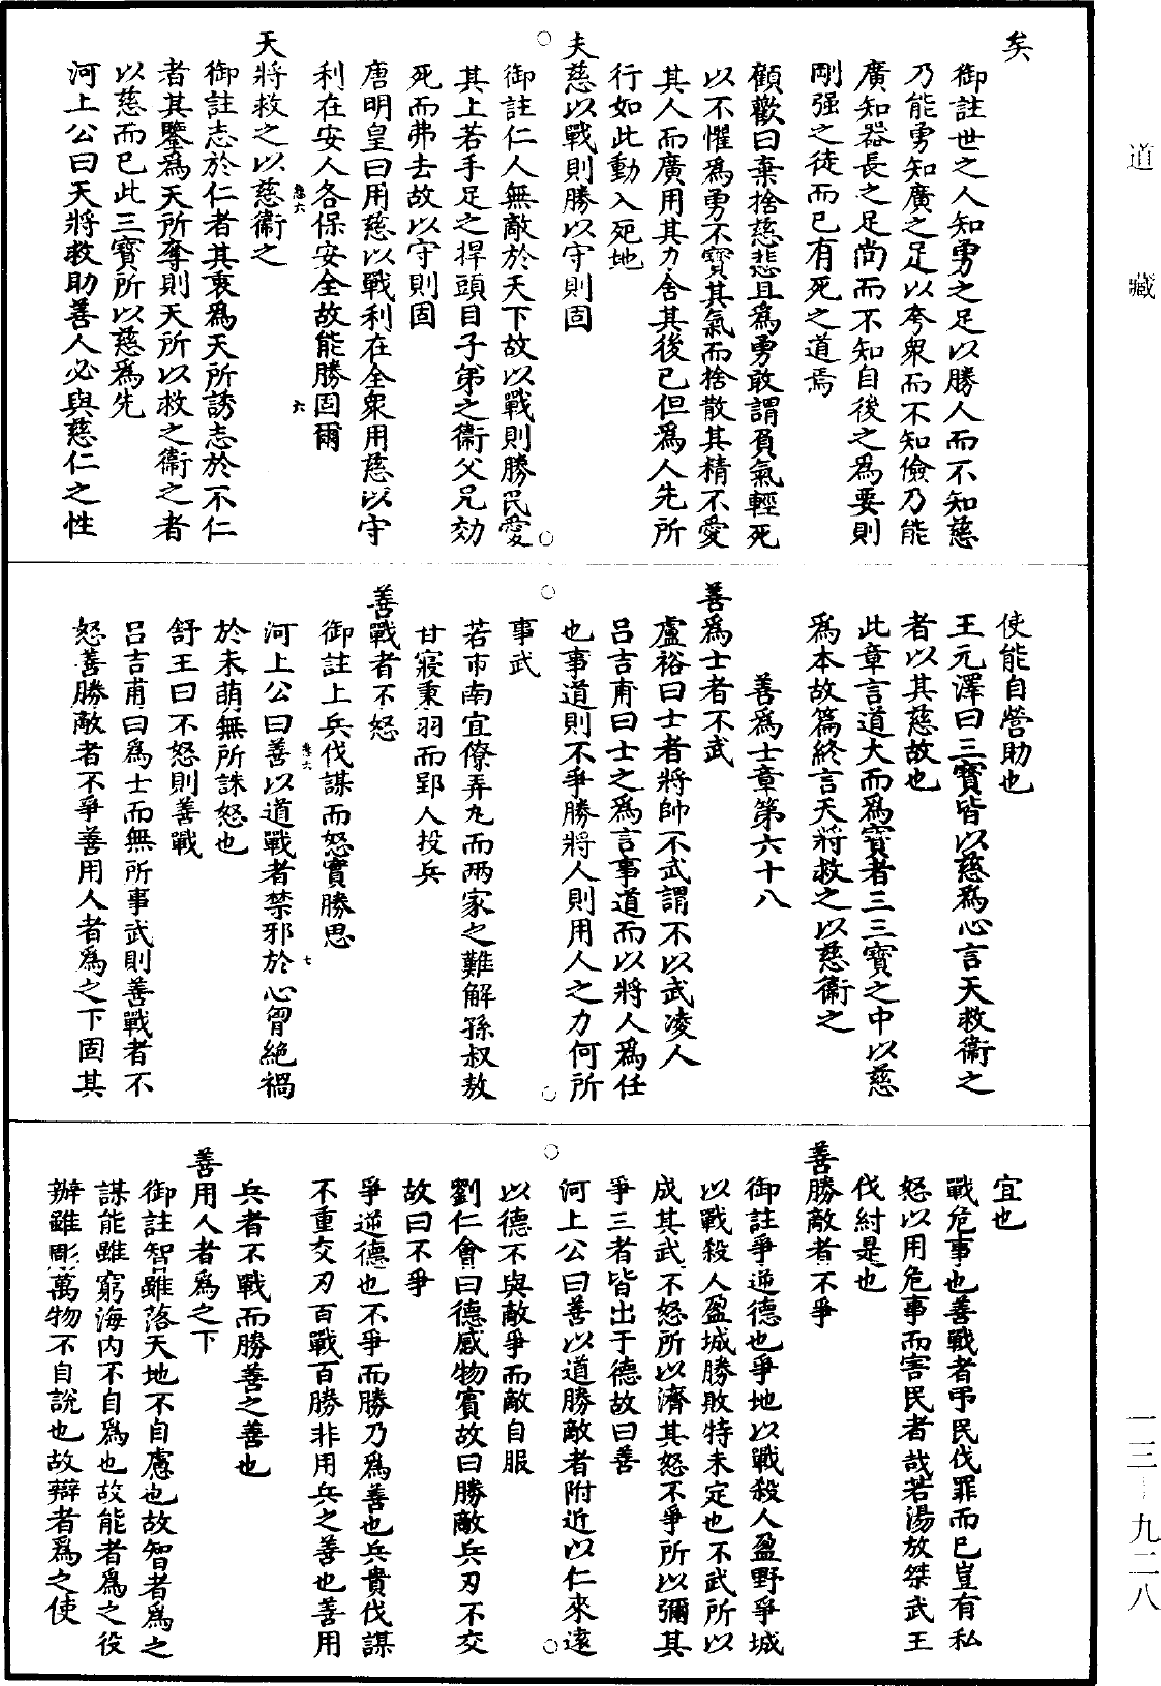 矣
御註世之人知勇之足以勝人而不知慈
乃能勇知廣之足以夸衆而不知儉乃能
廣知器長之足尚而不知自後之爲要則
剛强之徒而已有死之道焉
顧歡曰棄捨慈悲且爲勇敢謂負氣輕死
以不懼爲勇不寶其氣而捨散其精不愛
其人而廣用其力舍其後已但爲人先所
行如此動入死地
夫慈以戰則勝以守則固
御註仁人無敵於天下故以戰則勝民愛
其上若手足之捍頭目子弟之衞父兄効
死而弗去故以守則固
唐明皇曰用慈以戰利在全衆用慈以守
利在安人各保安全故能勝固爾
慈六
六
天將救之以慈衞之
御註志於仁者其衷爲天所誘志於不仁
者其鑒爲天所奪則天所以救之衞之者
以慈而已此三寶所以慈爲先
河上公曰天將救助善人必與慈仁之性
使能自營助也
王元澤曰三寶皆以慈爲心言天救衞之
者以其慈故也
此章言道大而爲寶者三三寶之中以慈
爲本故篇終言天將救之以慈衞之
善爲士章第六十八
善爲士者不武
盧裕曰士者將帥不武謂不以武凌人
吕吉甫曰士之爲言事道而以將人爲任
也事道則不爭勝將人則用人之力何所
事武
若市南宜僚弄丸而兩家之難解孫叔敖
甘寢秉羽而郢人投兵
善戰者不怒
御註上兵伐謀而怒實勝思
慈六
七
河上公曰善以道戰者禁邪於心胷絶禍
於未萌無所誅怒也
舒王曰不怒則善戰
吕吉甫曰爲士而無所事武則善戰者不
怒善勝敵者不爭善用人者爲之下固其
宜也
戰危事也善戰者弔民伐罪而已豈有私
怒以用危事而害民者哉若湯放桀武王
伐紂是也
善勝敵者不爭
御註爭逆德也爭地以戰殺人盈野爭城
以戰殺人盈城勝敗特未定也不武所以
成其武不怒所以濟其怒不爭所以彌其
爭三者皆出于德故曰善
河上公曰善以道勝敵者附近以仁來遠
以德不與敵爭而敵自服
劉仁會曰德感物賓故曰勝敵兵刃不交
故曰不爭
爭逆德也不爭而勝乃爲善也兵貴伐謀
不重交刃百戰百勝非用兵之善也善用
兵者不戰而勝善之善也
善用人者爲之下
御註智雖落天地不自慮也故智者爲之
謀能雖窮海内不自爲也故能者爲之役
辦雖彫萬物不自說也故辯者爲之使
道藏
一三—九二八